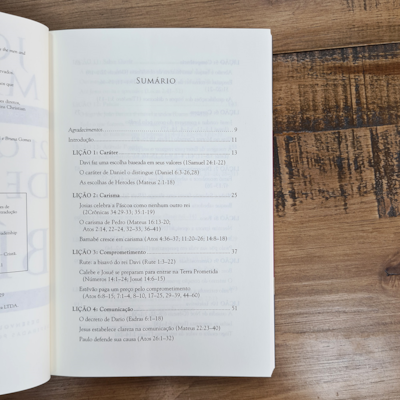 SUMÁRIO
Agradecimentos 9
Introdução 11
LIÇÃO 1: Caráter 13
Davi faz uma escolha baseada em seus valores (1Samuel 24:1-22)
O caráter de Daniel o distingue (Daniel 6:3-28)
As escolhas de Herodes (Marcos 2:1-18)
LIÇÃO 2: Carisma 25
Josias celebra a Páscoa como nenhum outro rei
(2Crônicas 34:29-33; 35:1-19)
O carisma de Pedro (Marcos 16:15-20;
Atos 2:14, 22-24, 32-33, 36-41)
Barnabé cresce em carisma (Atos 4:36-37; 11:20-26; 14:8-18)
LIÇÃO 3: Comprometimento 37
Rute: a bisavó do rei Davi (Rute 1:3-22)
Calebe e Josué se preparam para entrar na Terra Prometida
(Números 14:1-24; Josué 14:6-15)
Estêvão paga um preço pelo comprometimento
(Atos 6:8-15; 7:1-4, 8-10, 17-25, 29-39, 44-60)
LIÇÃO 4: Comunicação 51
O decreto de Dario (Esdras 6:1-18)
Jesus estabelece clareza na comunicação (Mateus 22:23-40)
Paulo defende sua causa (Atos 26:1-32)